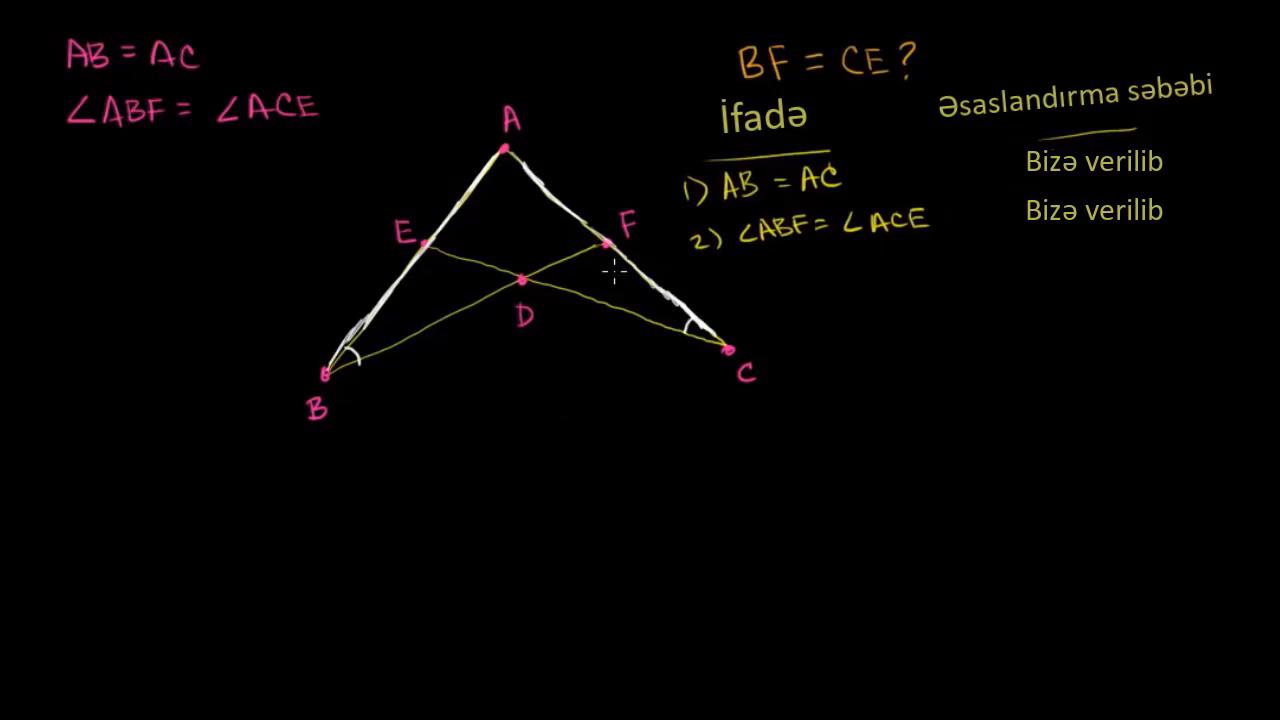 AB = AC
∠ABF = ∠ACE
BF = CE?
İfadə
Əsaslandırma səbəbi
1) AB = AC
Bizə verilib
2) ∠ABF = ∠ACE
Bizə verilib
A
E
F
D
B
C